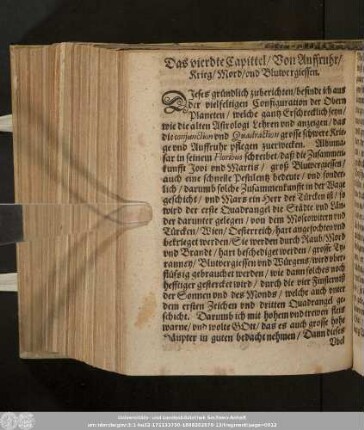 Das vierdte Capittel/ Von Auffruhr/
Krieg/ Mord/ vnd Blutvergiessen.
DJeses gründlich zuberichten/ befinde ich aus
der vielfeltigen Configuration der Obern
Planeten/ welche gantz Erschrecklich seyn/
wie die alten Astrologi Lehren vnd anzeigen/ das
die conjunction vnd Quadration grosse schwere Krie-
ge vnd Auffruhr pflegen zuerwecken. Albuma-
sar in seinem Floribus schreibet/ daß die Zusammen-
kunfft Jovi vnd Martis/ groß Blutvergiessen/
auch eine schnelle Pestilentz bedeute/ vnd sonder-
lich/ darumb solche Zusammenkunfft in der Wage
geschicht/ vnd Mars ein Herr der Türcken ist/ so
wird der erste Quadrangel die Städte vnd Län-
der darunter gelegen/ von den Moscowitern vnd
Türcken/ Wien/ Oesterreich/ hart angefochten vnd
bekrieget werden/ Sie werden durch Raub/ Mord
vnd Brandt/ hart beschediget werden/ grosse Ty-
ranney/ Blutvergiessen vnd Würgens/ wird vber-
flüssig gebrauchet werden/ wie dann solches noch
hefftiger gestercket wird/ durch die vier Finsterniß
der Sonnen vnd des Monds/ welche auch vnter
dem ersten Zeichen vnd dritten Quadrangel ge-
schicht. Darumb ich mit hohem vnd trewen fleis
warne/ vnd wolte GOtt/ das es auch grosse hohe
Häupter in guten bedacht nehmen/ Dann dieses
Vbel
Universitäts- und Landesbibliothek Sachsen-Anhalt